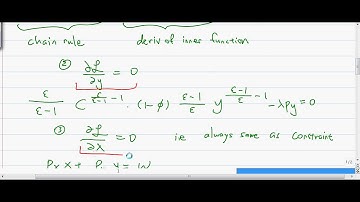 chain rule deriv of inner function
② ∂ℒ/∂y = 0
ε/(ε-1) C^(ε/(ε-1) -1) · (1-ϕ) (ε-1)/ε y^((ε-1)/ε -1) - λpy = 0
③ ∂ℒ/∂λ = 0 ie always same as constraint
Px X + P y = W